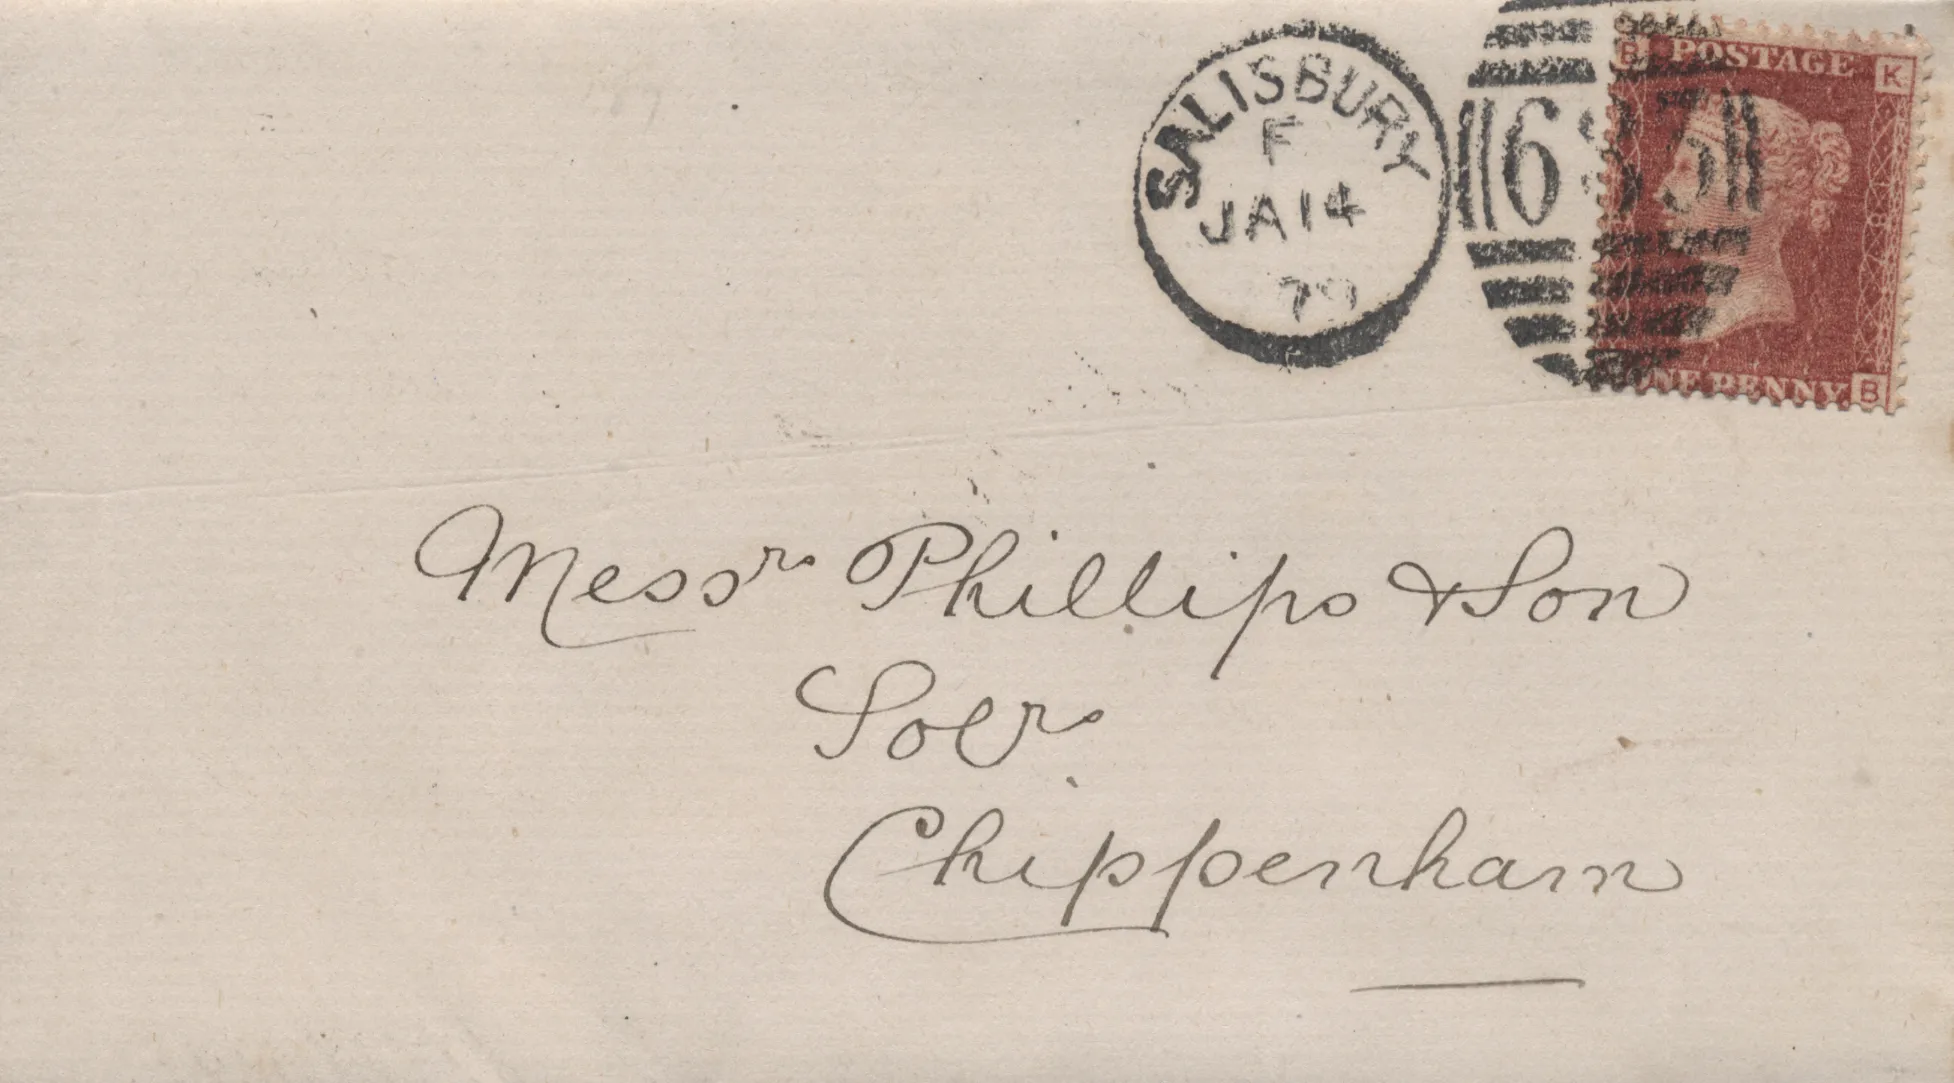 SALISBURY
F
JA 14
79
683
B POSTAGE K
ONE PENNY B
Messrs Phillips & Son
Solrs
Chippenham